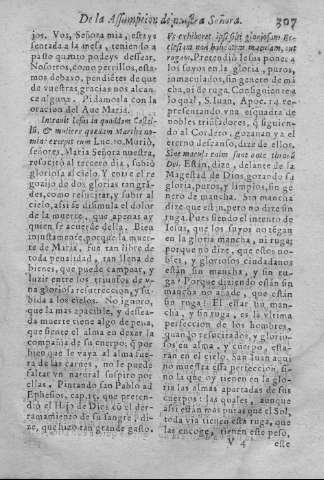 De la Assumpcion de nuestra Señora. 307
jos. Vos, Señora mia, estays
sentada a la mesa, teniendo a
pasto quanto podeys dessear.
Nosotros, como perrillos, esta-
mos debaxo, perdidetes de que
de vuestras gracias nos alcan-
ce alguna. Pidamosla con la
oracion del Aue Maria.
Intrauit Iesus in quoddam Castel-
lũ, & mulier quædam Martha no-
mine excepit eum Luc. 10. Muriò,
señores, Maria Señora nuestra,
resucitò al tercero dia, subiò
gloriosa al cielo. Y entre el re
gozijo de dos glorias tan gran-
des, como resucitar, y subir al
cielo, assi se dissimula el dolor
de la muerte, que apenas ay
quien se acuerde della. Bien
injustamente, porque la muer-
te de Maria, fue tan libre de
toda penalidad, tan llena de
bienes, que puede campear, y
luzir entre los triunfos de v-
na gloriosa resurreccion, y su-
bida a los cielos. No ignoro,
que la mas apacible, y dessea-
da muerte tiene algo de pena,
que siente el alma en dexar la
compañia de su cuerpo; q̃ por
bien que le vaya al alma fue-
ra de las carnes, no le puede
faltar vn natural suspiro por
ellas. Pintando san Pablo ad
Ephesios, cap. 5. que preten-
diò el Hijo de Dios cõ el der-
ramamiento de su sangre, di-
ze, que hizo tan grande gasto.
Vt exhiberet ipse sibi gloriosam Ec-
clesiam non habentem maculam, aut
rugam. Pretendiò Iesus poner a
los suyos en la gloria, puros,
inmaculados, sin genero de mã-
cha, ni de ruga. Consiguiente a
lo qual, S. Iuan, Apoc. 14 re-
presentando vna equadra de
nobles triunfadores, q̃ siguien-
do al Cordero, gozauan ya el
eterno descanso, dize de ellos.
Sine macula enim sunt ante thronũ
Dei. Estàn, dize, delante de la
Magestad de Dios, gozando su
gloria, puros, y limpios, sin gé
nero de mancha. Sin mancha
dize que estàn, pero no dize sin
ruga. Pues siendo el intento de
Iesus, que los suyos no tẽgan
en la gloria mancha, ni ruga;
porque no dize, que estos no-
bles, y gloriosos ciudadanos
estàn sin mancha, y sin ru-
ga? Porque diziendo estàn sin
mancha, no añade, que estàn
sin ruga? El estar sin man-
cha, y sin ruga, es la vltima
perfeccion de los hombres,
quando resucitados, y glorio-
sos en alma, y cuerpo, esta-
ràn en el cielo. San Iuan aqui
no muestra essa perfeccion, si-
no la que oy tienen en la glo-
ria las almas apartadas de sus
cuerpos: las quales, aunque
assi estàn mas puras que el Sol,
toda via tienen esta ruga, que
las encoge, tienen este peso,
V 4 este